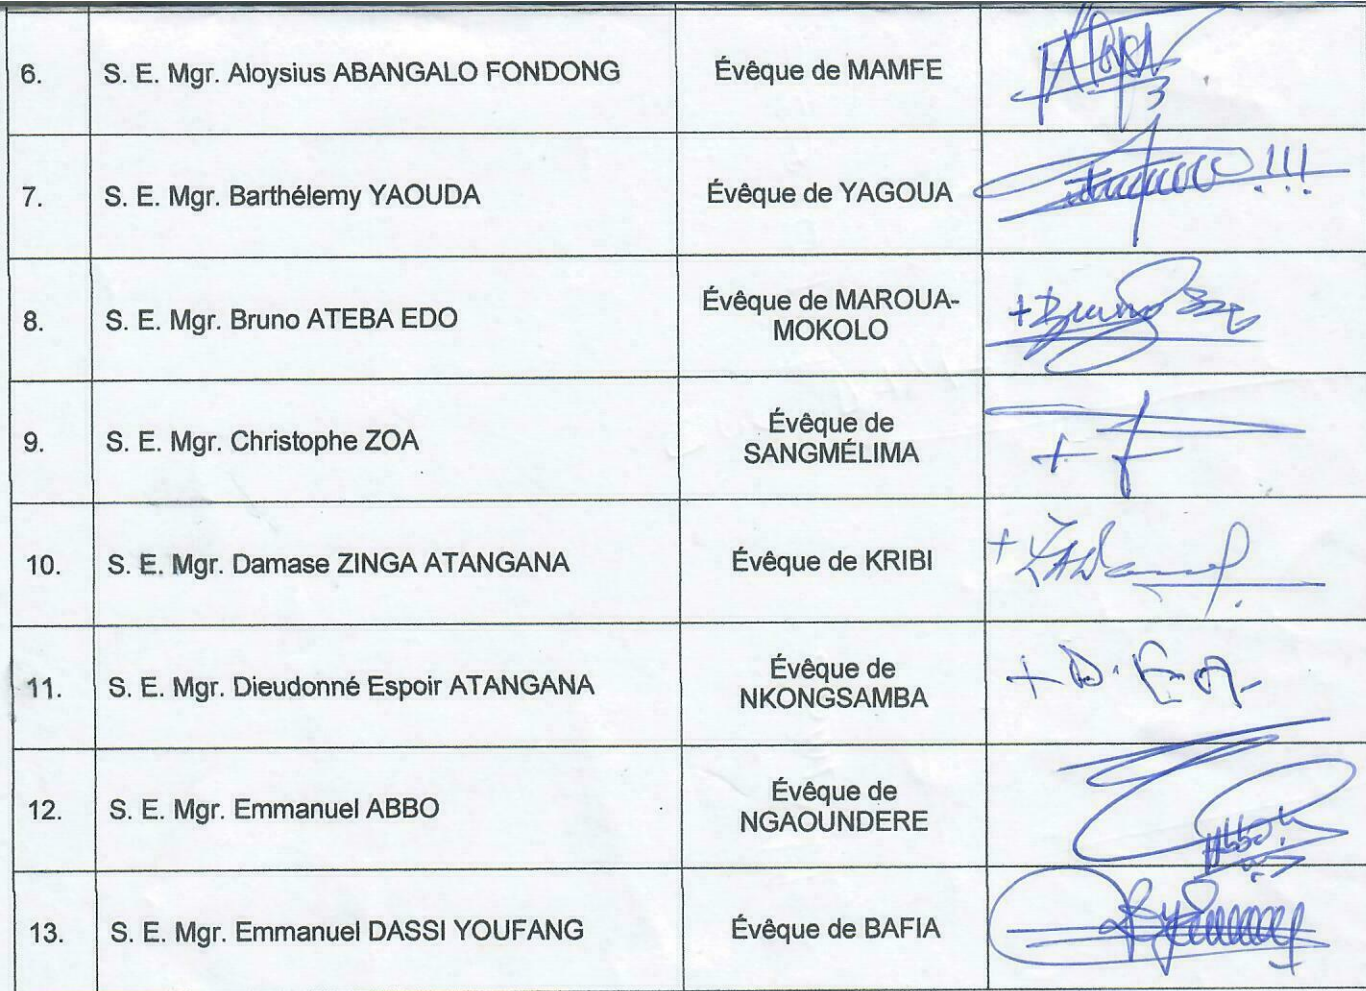 6.
S. E. Mgr. Aloysius ABANGALO FONDONG
Évêque de MAMFE
7.
S. E. Mgr. Barthélemy YAOUDA
Évêque de YAGOUA
!!!
8.
S. E. Mgr. Bruno ATEBA EDO
Évêque de MAROUA-
MOKOLO
+ Bruno
9.
S. E. Mgr. Christophe ZOA
Évêque de
SANGMÉLIMA
+
10.
S. E. Mgr. Damase ZINGA ATANGANA
Évêque de KRIBI
+
11.
S. E. Mgr. Dieudonné Espoir ATANGANA
Évêque de
NKONGSAMBA
+ D. E. A.
12.
S. E. Mgr. Emmanuel ABBO
Évêque de
NGAOUNDERE
13.
S. E. Mgr. Emmanuel DASSI YOUFANG
Évêque de BAFIA